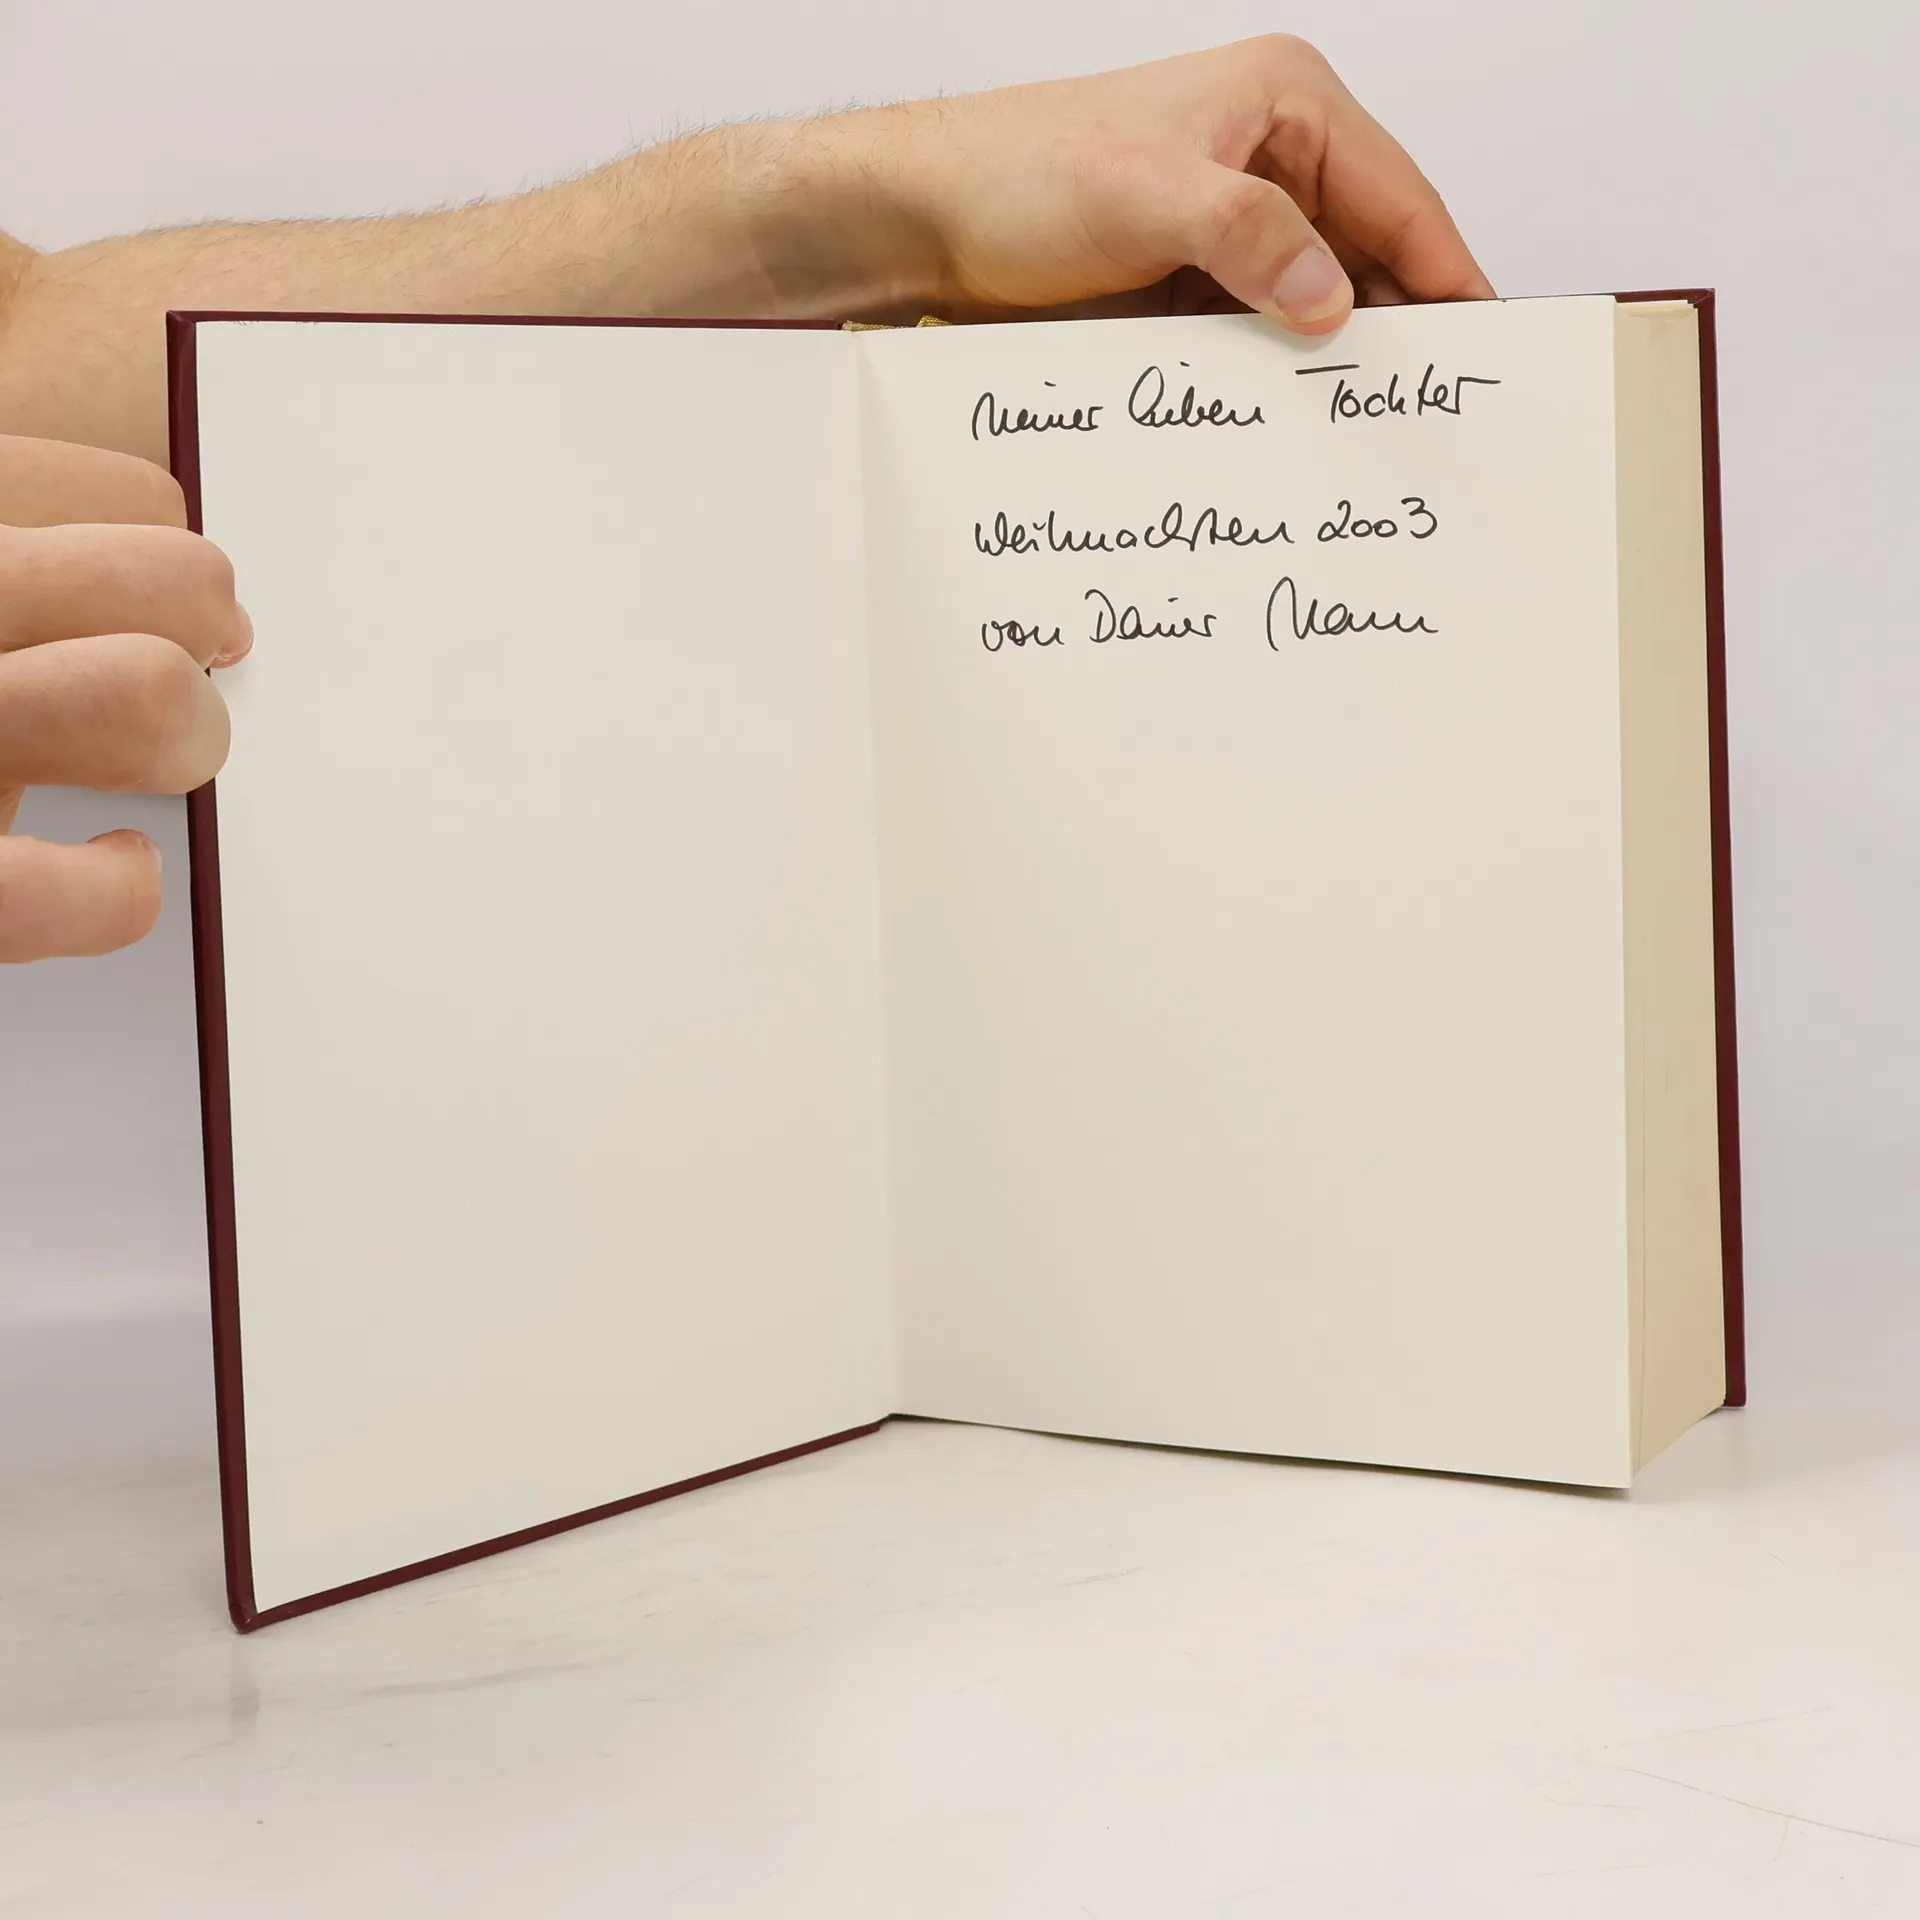 Meiner lieben Tochter
Weihnachten 2003
von Deiner Mam